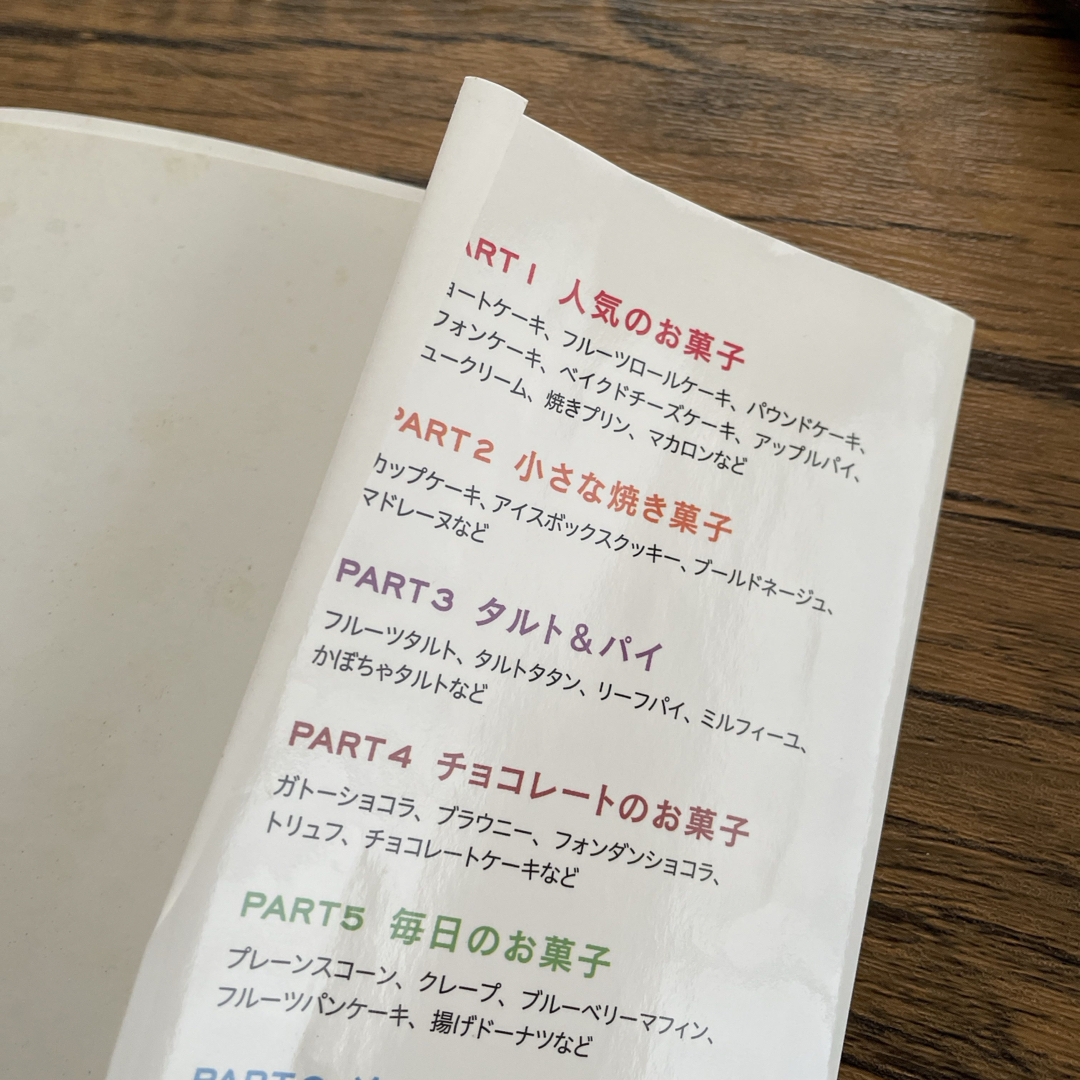 ART1 人気のお菓子
ョートケーキ、フルーツロールケーキ、パウンドケーキ、
フォンケーキ、ベイクドチーズケーキ、アップルパイ、
ュークリーム、焼きプリン、マカロンなど
PART2 小さな焼き菓子
カップケーキ、アイスボックスクッキー、ブールドネージュ、
マドレーヌなど
PART3 タルト&パイ
フルーツタルト、タルトタタン、リーフパイ、ミルフィーユ、
かぼちゃタルトなど
PART4 チョコレートのお菓子
ガトーショコラ、ブラウニー、フォンダンショコラ、
トリュフ、チョコレートケーキなど
PART5 毎日のお菓子
プレーンスコーン、クレープ、ブルーベリーマフィン、
フルーツパンケーキ、揚げドーナツなど